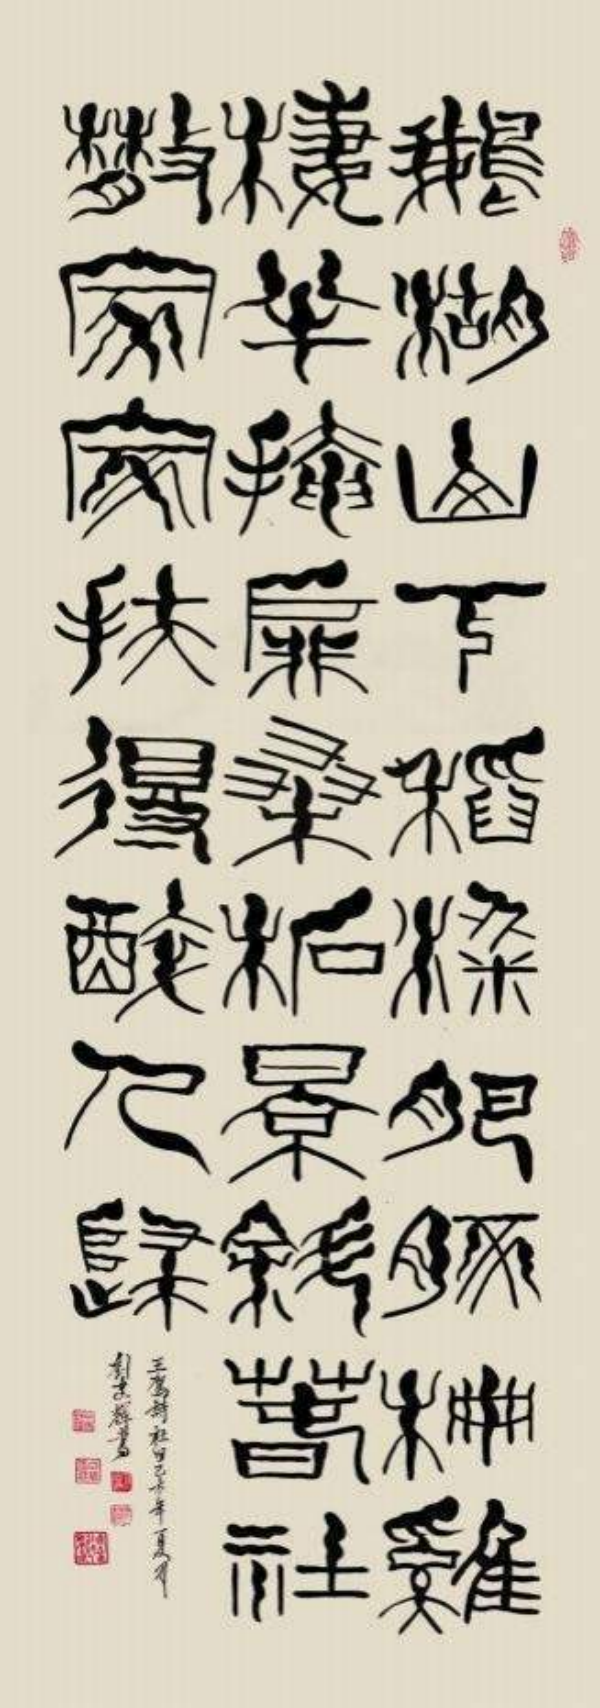 鵝湖山下稻粱肥豚柵雞
棲半掩扉桑柘景斜春社
散家家扶得醉人歸
王駕詩社日己卯年夏月
劉書